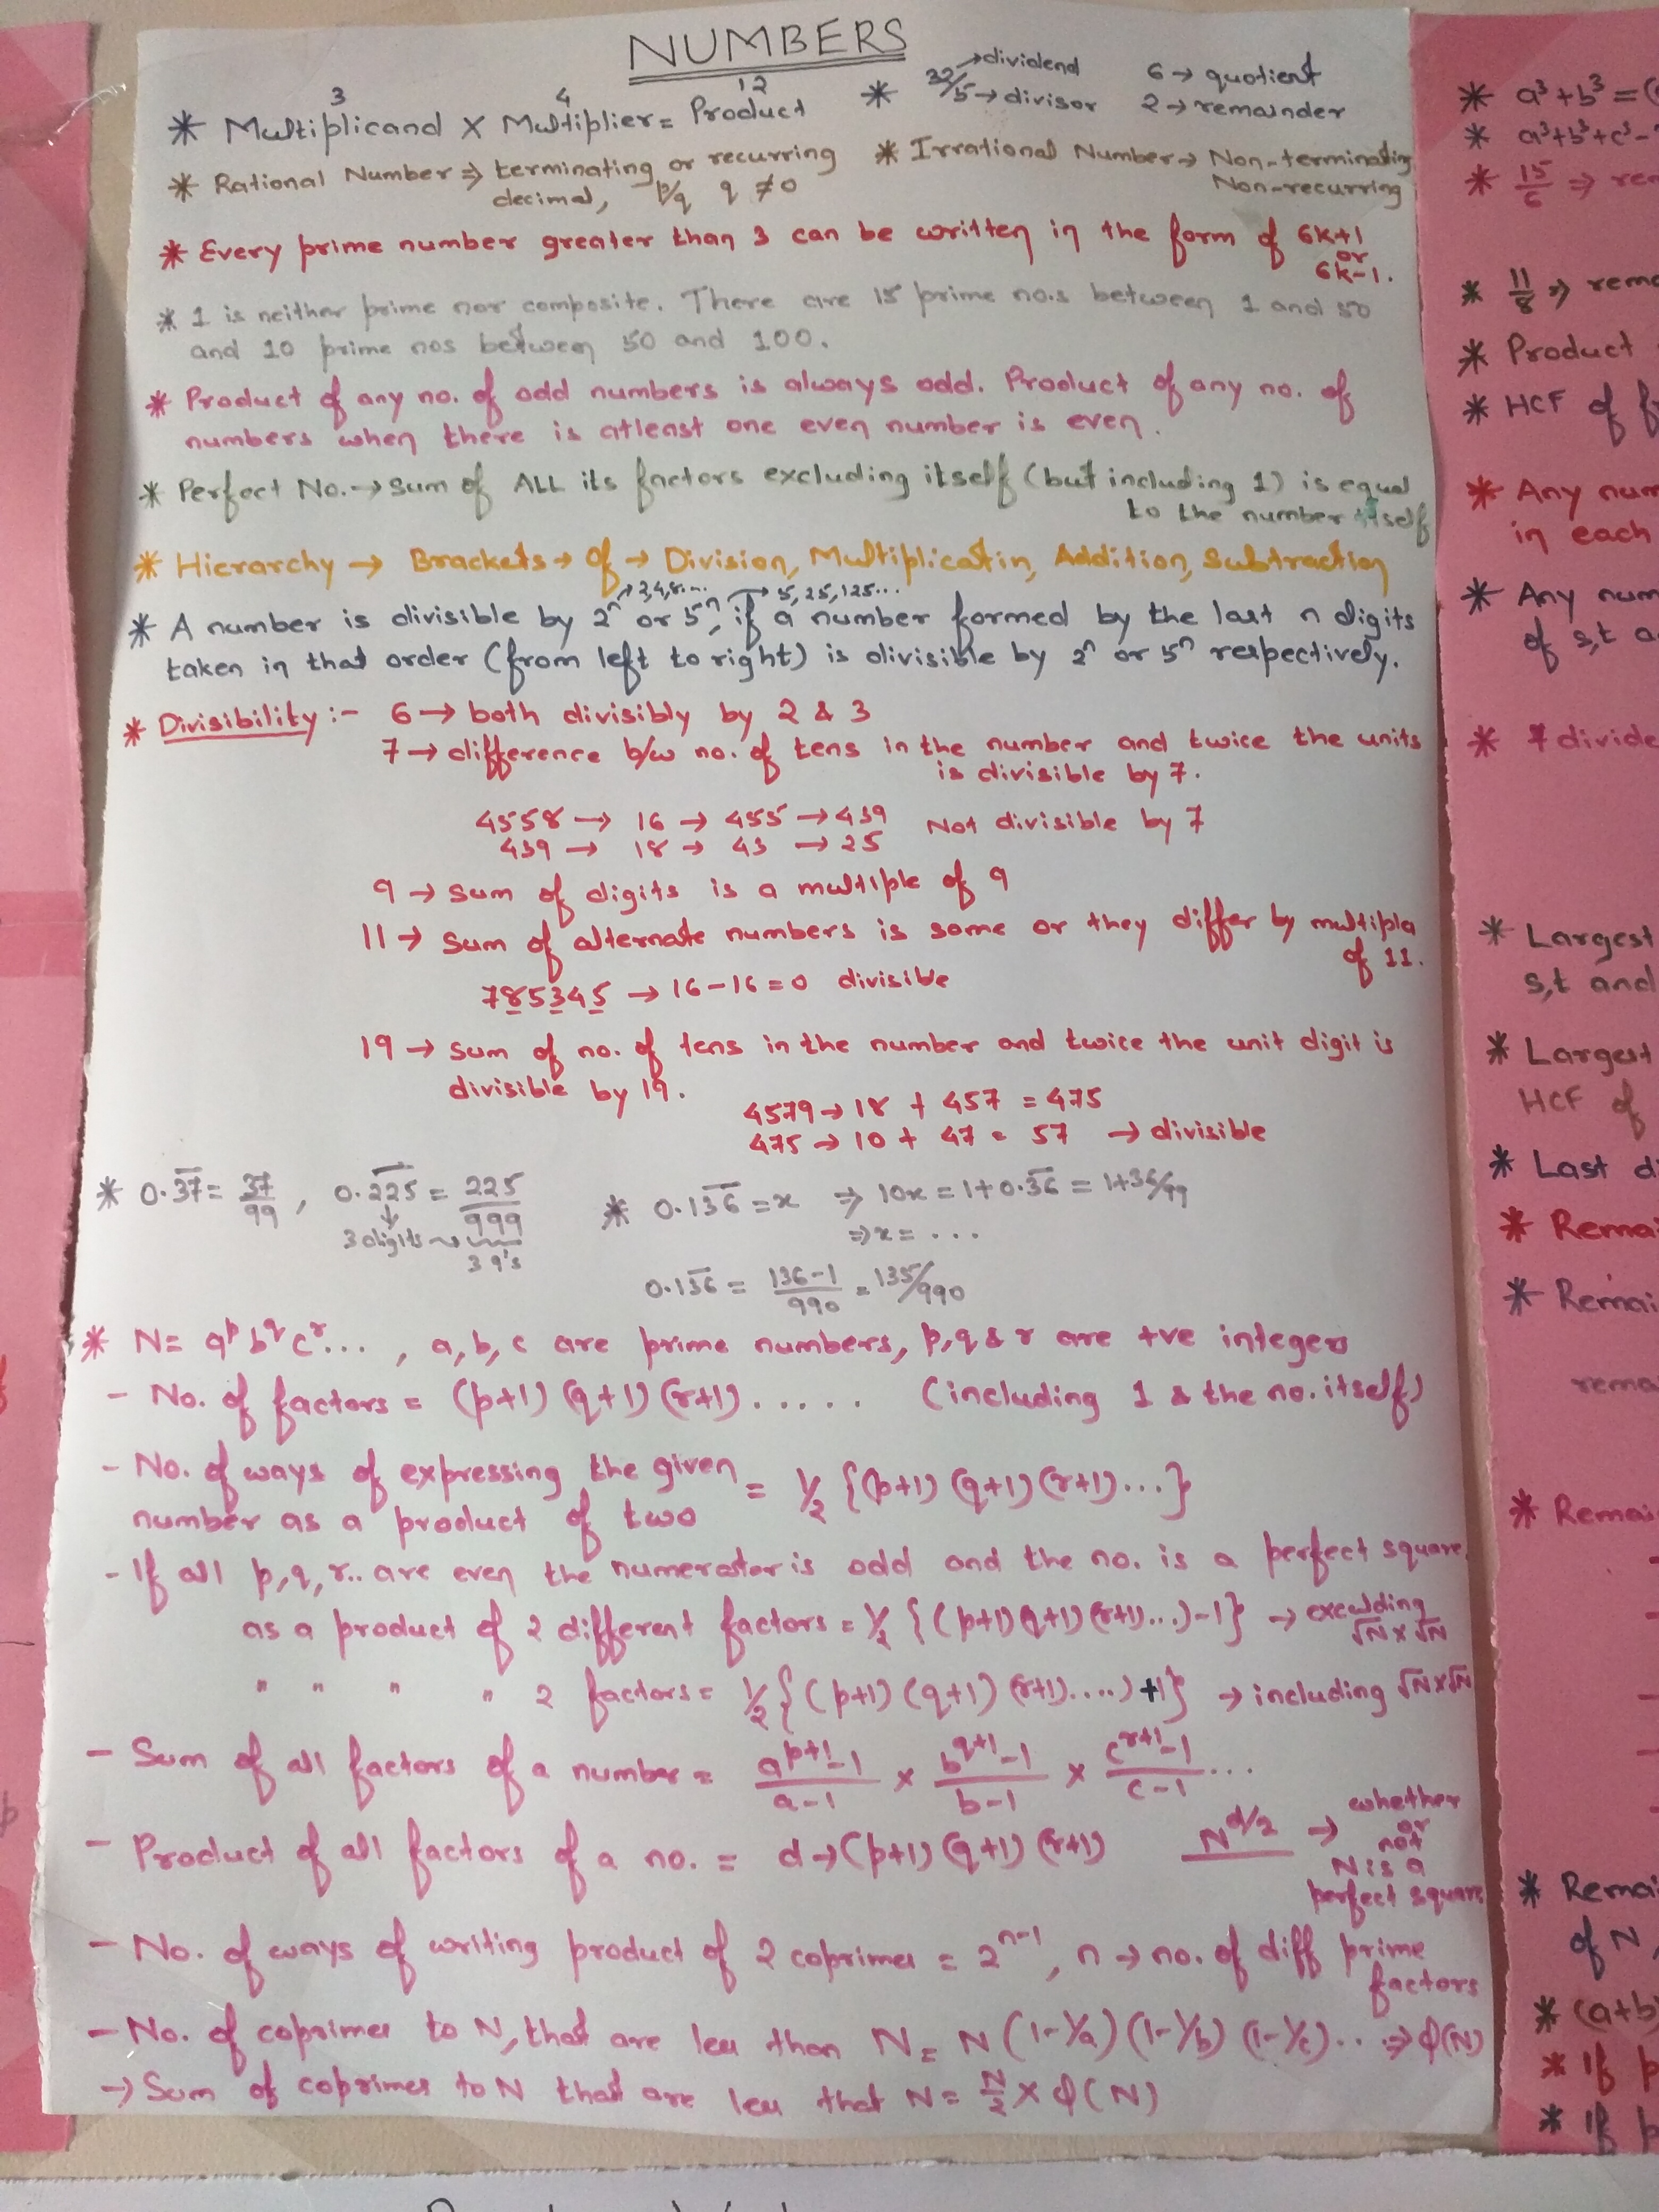 NUMBERS
3 4 12
* Multiplicand X Multiplier = Product
* 32/5 → dividend → divisor 6 → quotient 2 → remainder
* Rational Number ⇒ terminating or recurring
decimal, p/q q ≠ 0
* Irrational Number → Non-terminating
Non-recurring
* Every prime number greater than 3 can be written in the form of 6k+1
or
6k-1.
* 1 is neither prime nor composite. There are 15 prime no.s between 1 and 50
and 10 prime nos between 50 and 100.
* Product of any no. of odd numbers is always odd. Product of any no. of
numbers when there is atleast one even number is even.
* Perfect No. → Sum of ALL its factors excluding itself (but including 1) is equal
to the number itself
* Hierarchy → Brackets → of → Division, Multiplicatin, Addition, Subtraction
→ 2,4,8... → 5,25,125...
* A number is divisible by 2ⁿ or 5ⁿ, if a number formed by the last n digits
taken in that order (from left to right) is divisible by 2ⁿ or 5ⁿ respectively.
* Divisibility :- 6 → both divisibly by 2 & 3
7 → difference b/w no. of tens in the number and twice the units
is divisible by 7.
4558 → 16 → 455 → 439 Not divisible by 7
439 → 18 → 43 → 25
9 → sum of digits is a multiple of 9
11 → sum of alternate numbers is same or they differ by multiple
of 11.
785345 → 16-16=0 divisible
19 → sum of no. of tens in the number and twice the unit digit is
divisible by 19.
4579 → 18 + 457 = 475
475 → 10 + 47 = 57 → divisible
* 0.3̅7̅ = 37/99, 0.2̅2̅5̅ = 225/999
3 digits → 3 9's
* 0.13̅6̅ = x ⇒ 10x = 1+0.3̅6̅ = 1+36/99
⇒ x = ...
0.13̅6̅ = 136-1/990 = 135/990
* N = a^p b^q c^r ..., a, b, c are prime numbers, p, q & r are +ve integers
- No. of factors = (p+1) (q+1) (r+1) ..... (including 1 & the no. itself)
- No. of ways of expressing the given
number as a product of two = 1/2 {(p+1) (q+1) (r+1)...}
- If all p, q, r.. are even the numerator is odd and the no. is a perfect square.
as a product of 2 different factors = 1/2 {(p+1)(q+1)(r+1)...)-1} → exculding
√N x √N
" " " " 2 factors = 1/2 {(p+1) (q+1) (r+1)....) +1} → including √N x √N
- Sum of all factors of a number = a^(p+1)-1/a-1 x b^(q+1)-1/b-1 x c^(r+1)-1/c-1 ...
- Product of all factors of a no. = d → (p+1) (q+1) (r+1) N^(d/2) → whether
or
not
N is a
perfect square
- No. of ways of writing product of 2 coprimes = 2^(n-1), n → no. of diff prime
factors
- No. of coprimes to N, that are less than N = N (1-1/a) (1-1/b) (1-1/c) .. ⇒ φ(N)
→ Sum of coprimes to N that are less that N = N/2 x φ(N)
* a³+b³ = (
* a³+b³+c³-
* 15/6 ⇒ rem
* 11/8 ⇒ rem
* Product
* HCF of fr
* Any num
in each
* Any num
of s,t a
* 7 divide
* Largest
s,t and
* Largest
HCF of
* Last di
* Remai
* Remai
rema
* Remai
* Remai
of N,
* (a+b)
* If p
* If p